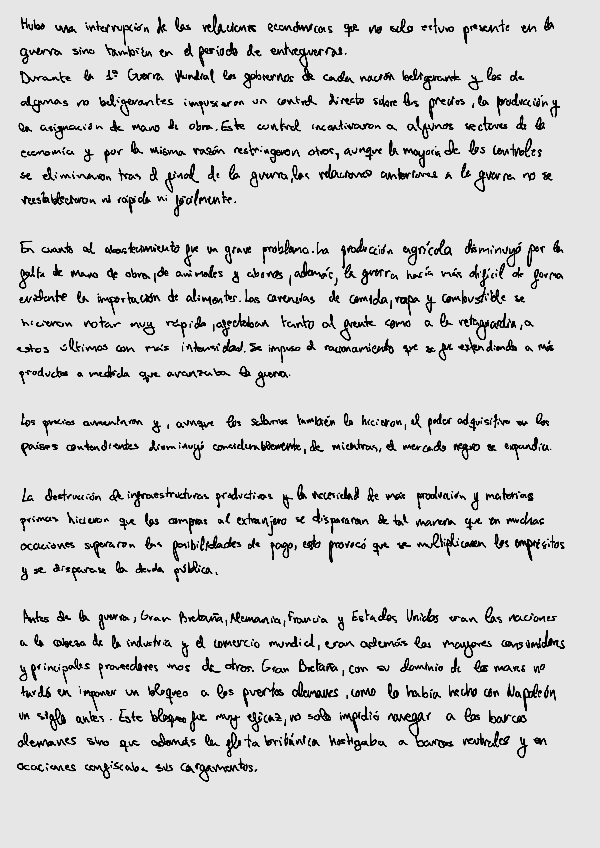 Hubo una interrupción de las relaciones económicas que no solo estuvo presente en la
guerra sino también en el periodo de entreguerras.
Durante la 1ª Guerra Mundial los gobiernos de cada nación beligerante y los de
algunas no beligerantes impusieron un control directo sobre los precios, la producción y
la asignación de mano de obra. Este control incentivaron a algunos sectores de la
economía y por la misma razón restringeron otros, aunque la mayoría de los controles
se eliminaron tras el final de la guerra, las relaciones anteriores a la guerra no se
reestablecieron ni rápida ni fácilmente.

En cuanto al abastecimiento fue un grave problema. La producción agrícola disminuyó por la
falta de mano de obra, de animales y abonos, además, la guerra hacía más difícil de forma
evidente la importación de alimentos. Las carencias de comida, ropa y combustible se
hicieron notar muy rápido, afectaban tanto al frente como a la retaguardia, a
estos últimos con más intensidad. Se impuso el racionamiento que se fue extendiendo a más
productos a medida que avanzaba la guerra.

Los precios aumentaron y, aunque los salarios también lo hicieron, el poder adquisitivo en los
países contendientes disminuyó considerablemente, de mientras, el mercado negro se expandía.

La destrucción de infraestructuras productivas y la necesidad de más producción y materias
primas hicieron que las compras al extranjero se dispararan de tal manera que en muchas
ocaciones superaron las posibilidades de pago, esto provocó que se multiplicasen los empréstitos
y se disparase la deuda pública.

Antes de la guerra, Gran Bretaña, Alemania, Francia y Estados Unidos eran las naciones
a la cabeza de la industria y el comercio mundial, eran además los mayores consumidores
y principales proveedores unos de otros. Gran Bretaña, con su dominio de los mares no
tardó en imponer un bloqueo a los puertos alemanes, como lo había hecho con Napoleón
un siglo antes. Este bloqueo fue muy eficaz, no solo impidió navegar a los barcos
alemanes sino que además la flota británica hostigaba a barcos neutrales y en
ocaciones confiscaba sus cargamentos.